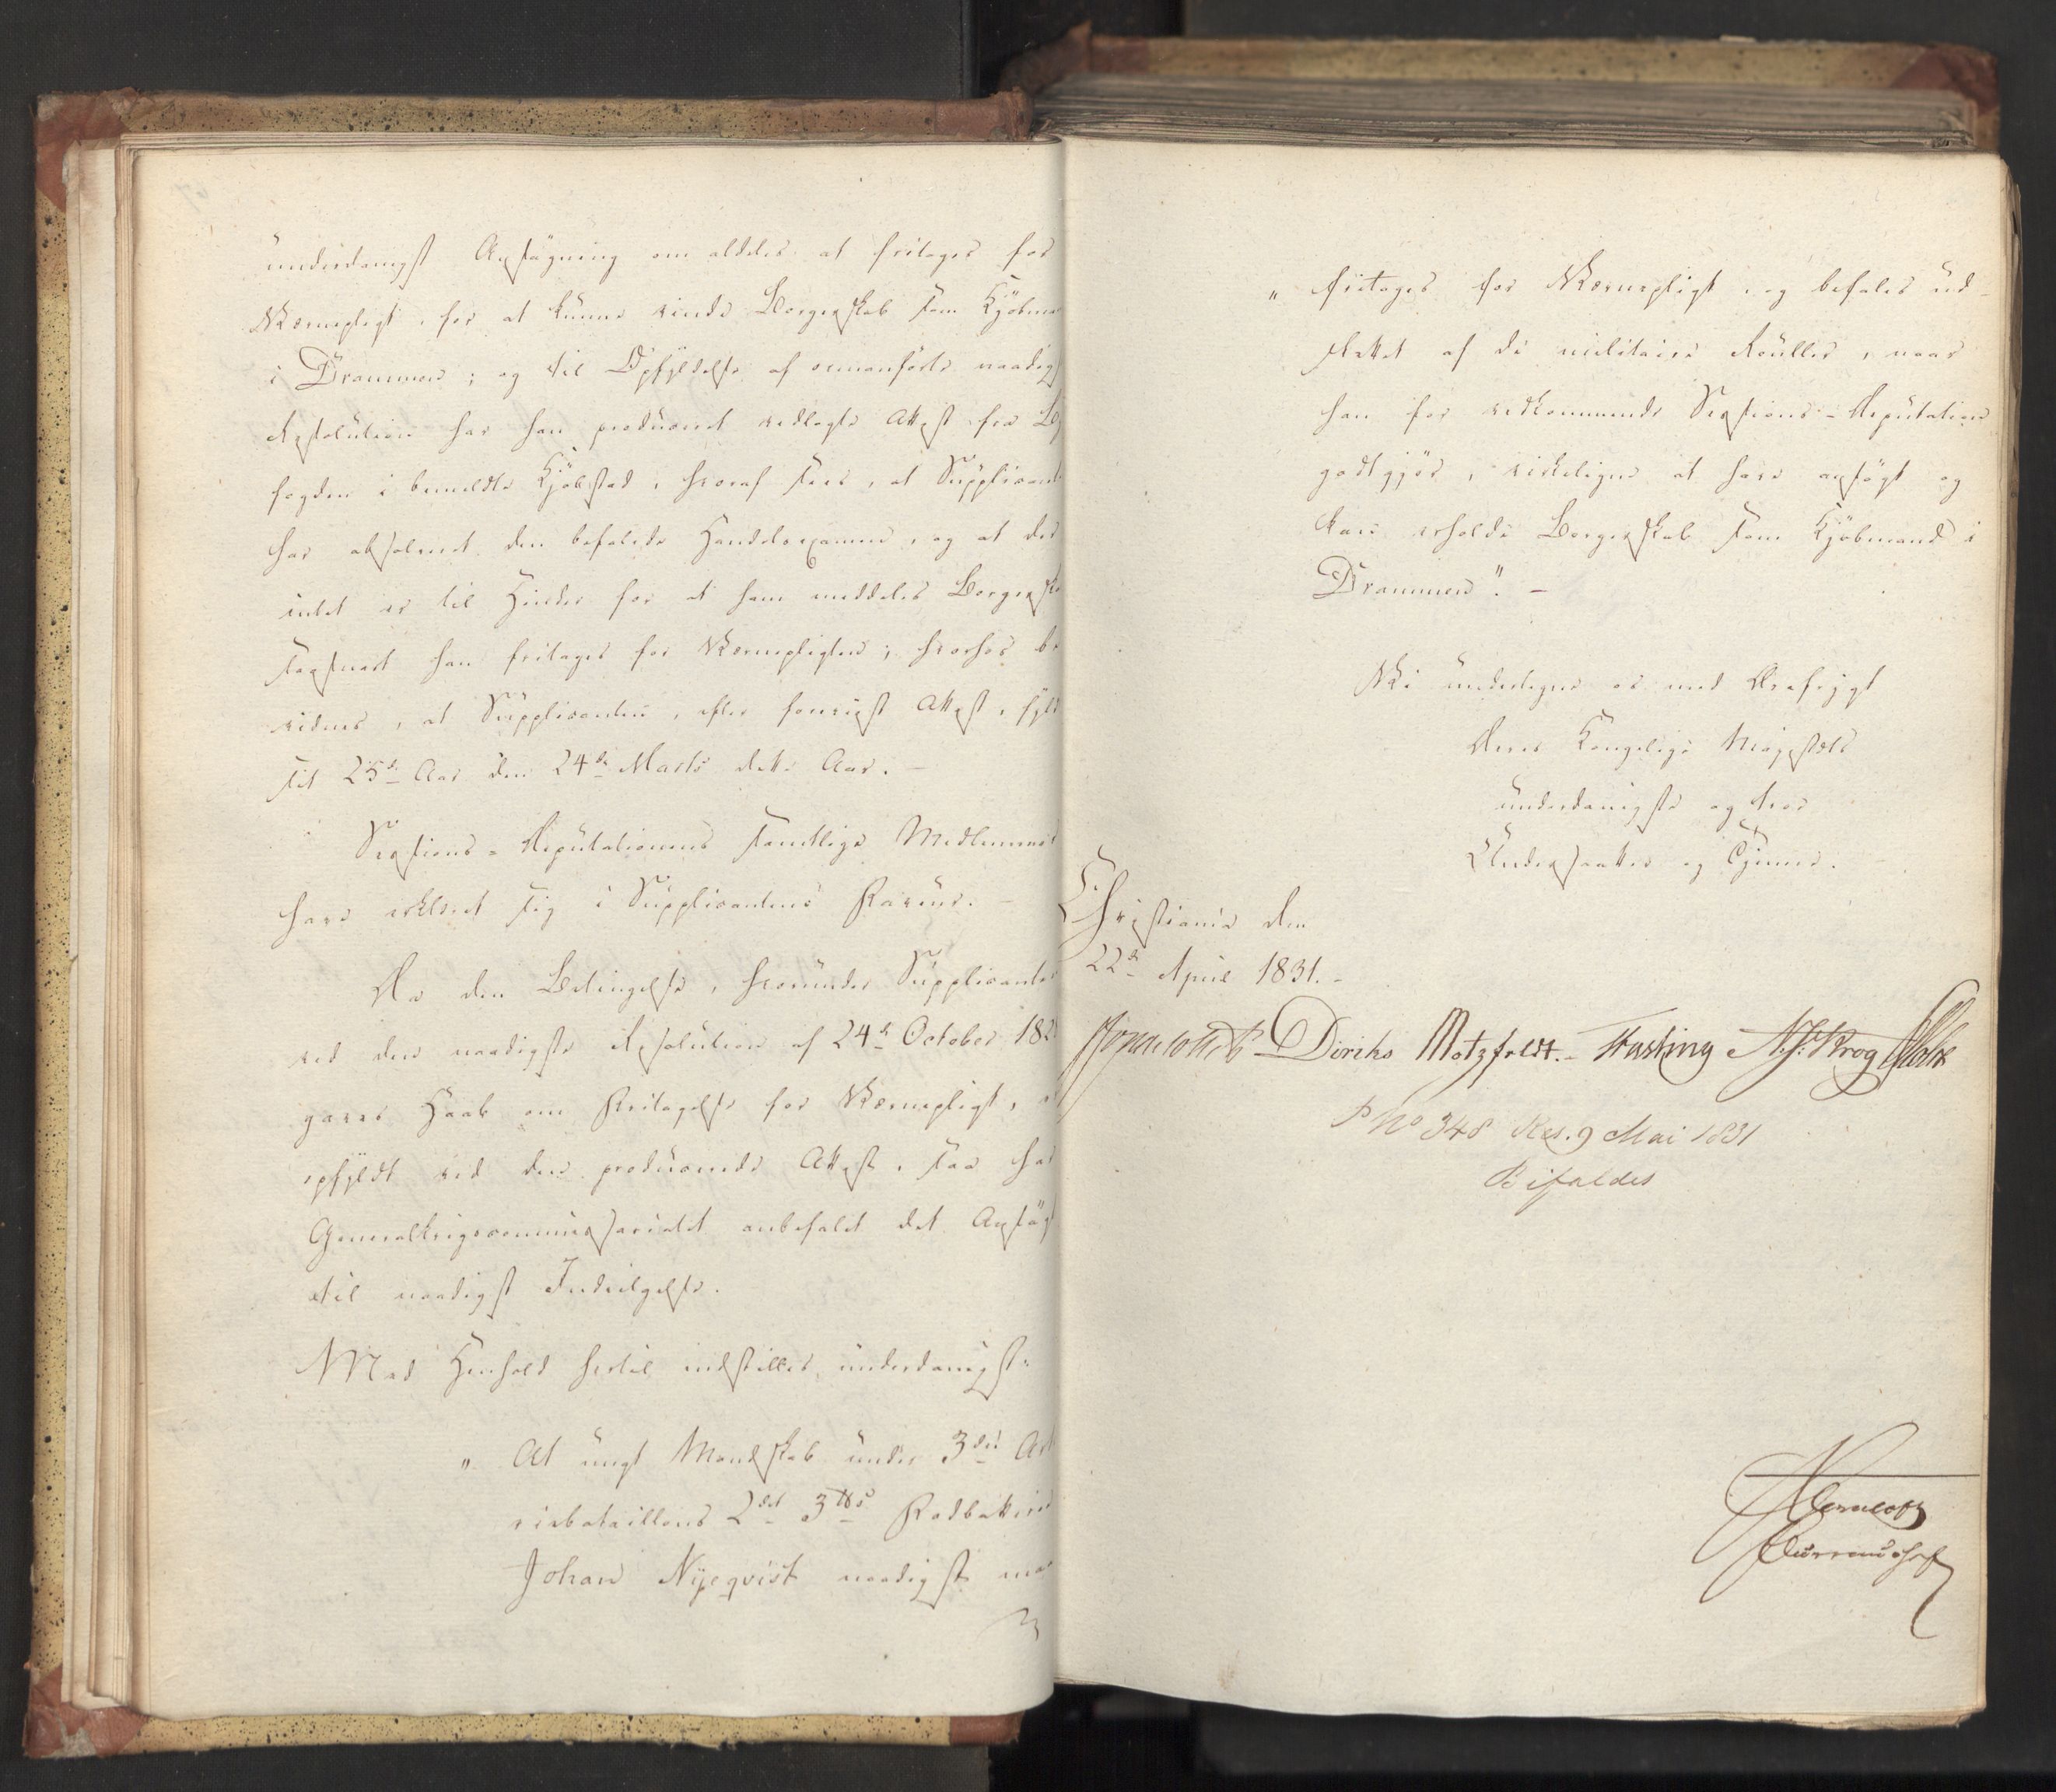 underdanigst Ansøgning om aldeles at fritages for
Værnepligt, for at kunne vinde Borgerskab som Kjöbma
i Drammen; og til Opfyldelse af ovenanførte naadigst
Resolution har han produceret vedlagte Attest fra By
fogden i bemeldte Kjöbstad, hvoraf sees, at Supplicant
har absolveret den befalede Handelsexamen, og at der
intet er til Hinder for at ham meddeles Borgerska
saasnart han fritages for Værnepligten; hvorhos be
vidnes, at Supplicanten, efter foreviist Attest, fyldt
sit 25de Aar den 24de Marts dette Aar. –
Sessions-Deputationens samtlige Medlemmer
have erklæret sig i Supplicantens Faveur. –
Da den Betingelse, hvorunder Supplicanten
ved den naadigste Resolution af 24de October 182
gaves Haab om Fritagelse for Værnepligt, e
opfyldt ved den producerede Attest, saa har
Generalkrigscommissariatet anbefalet det Ansøg
til naadigst Indvilgelse.
Med Henhold hertil indstilles underdanigst:
„ At ungt Mandskab under 3die Art
riebataillons 2det 3 Fodbatterie
Johan Nyeqvist naadigst maa
„ fritages for Værnepligt, og befales ud-
slettet af de militaire Rouller, naar
han for vedkommende Sessions-Deputation
godtgjør, virkeligen at have ansøgt og
kan erholde Borgerskab som Kjöbmand i
Drammen". –
Vi undertegne os med Ærefrygt
Deres Kongelige Majestæts
underdanigste og troe
Undersaatter og Tjenere.
Christiania den
22de April 1831. –
Diriks Motzfeldt. – Fasting N. J. Krog Holst
P No 348 Res. 9 Mai 1831
Bifaldes